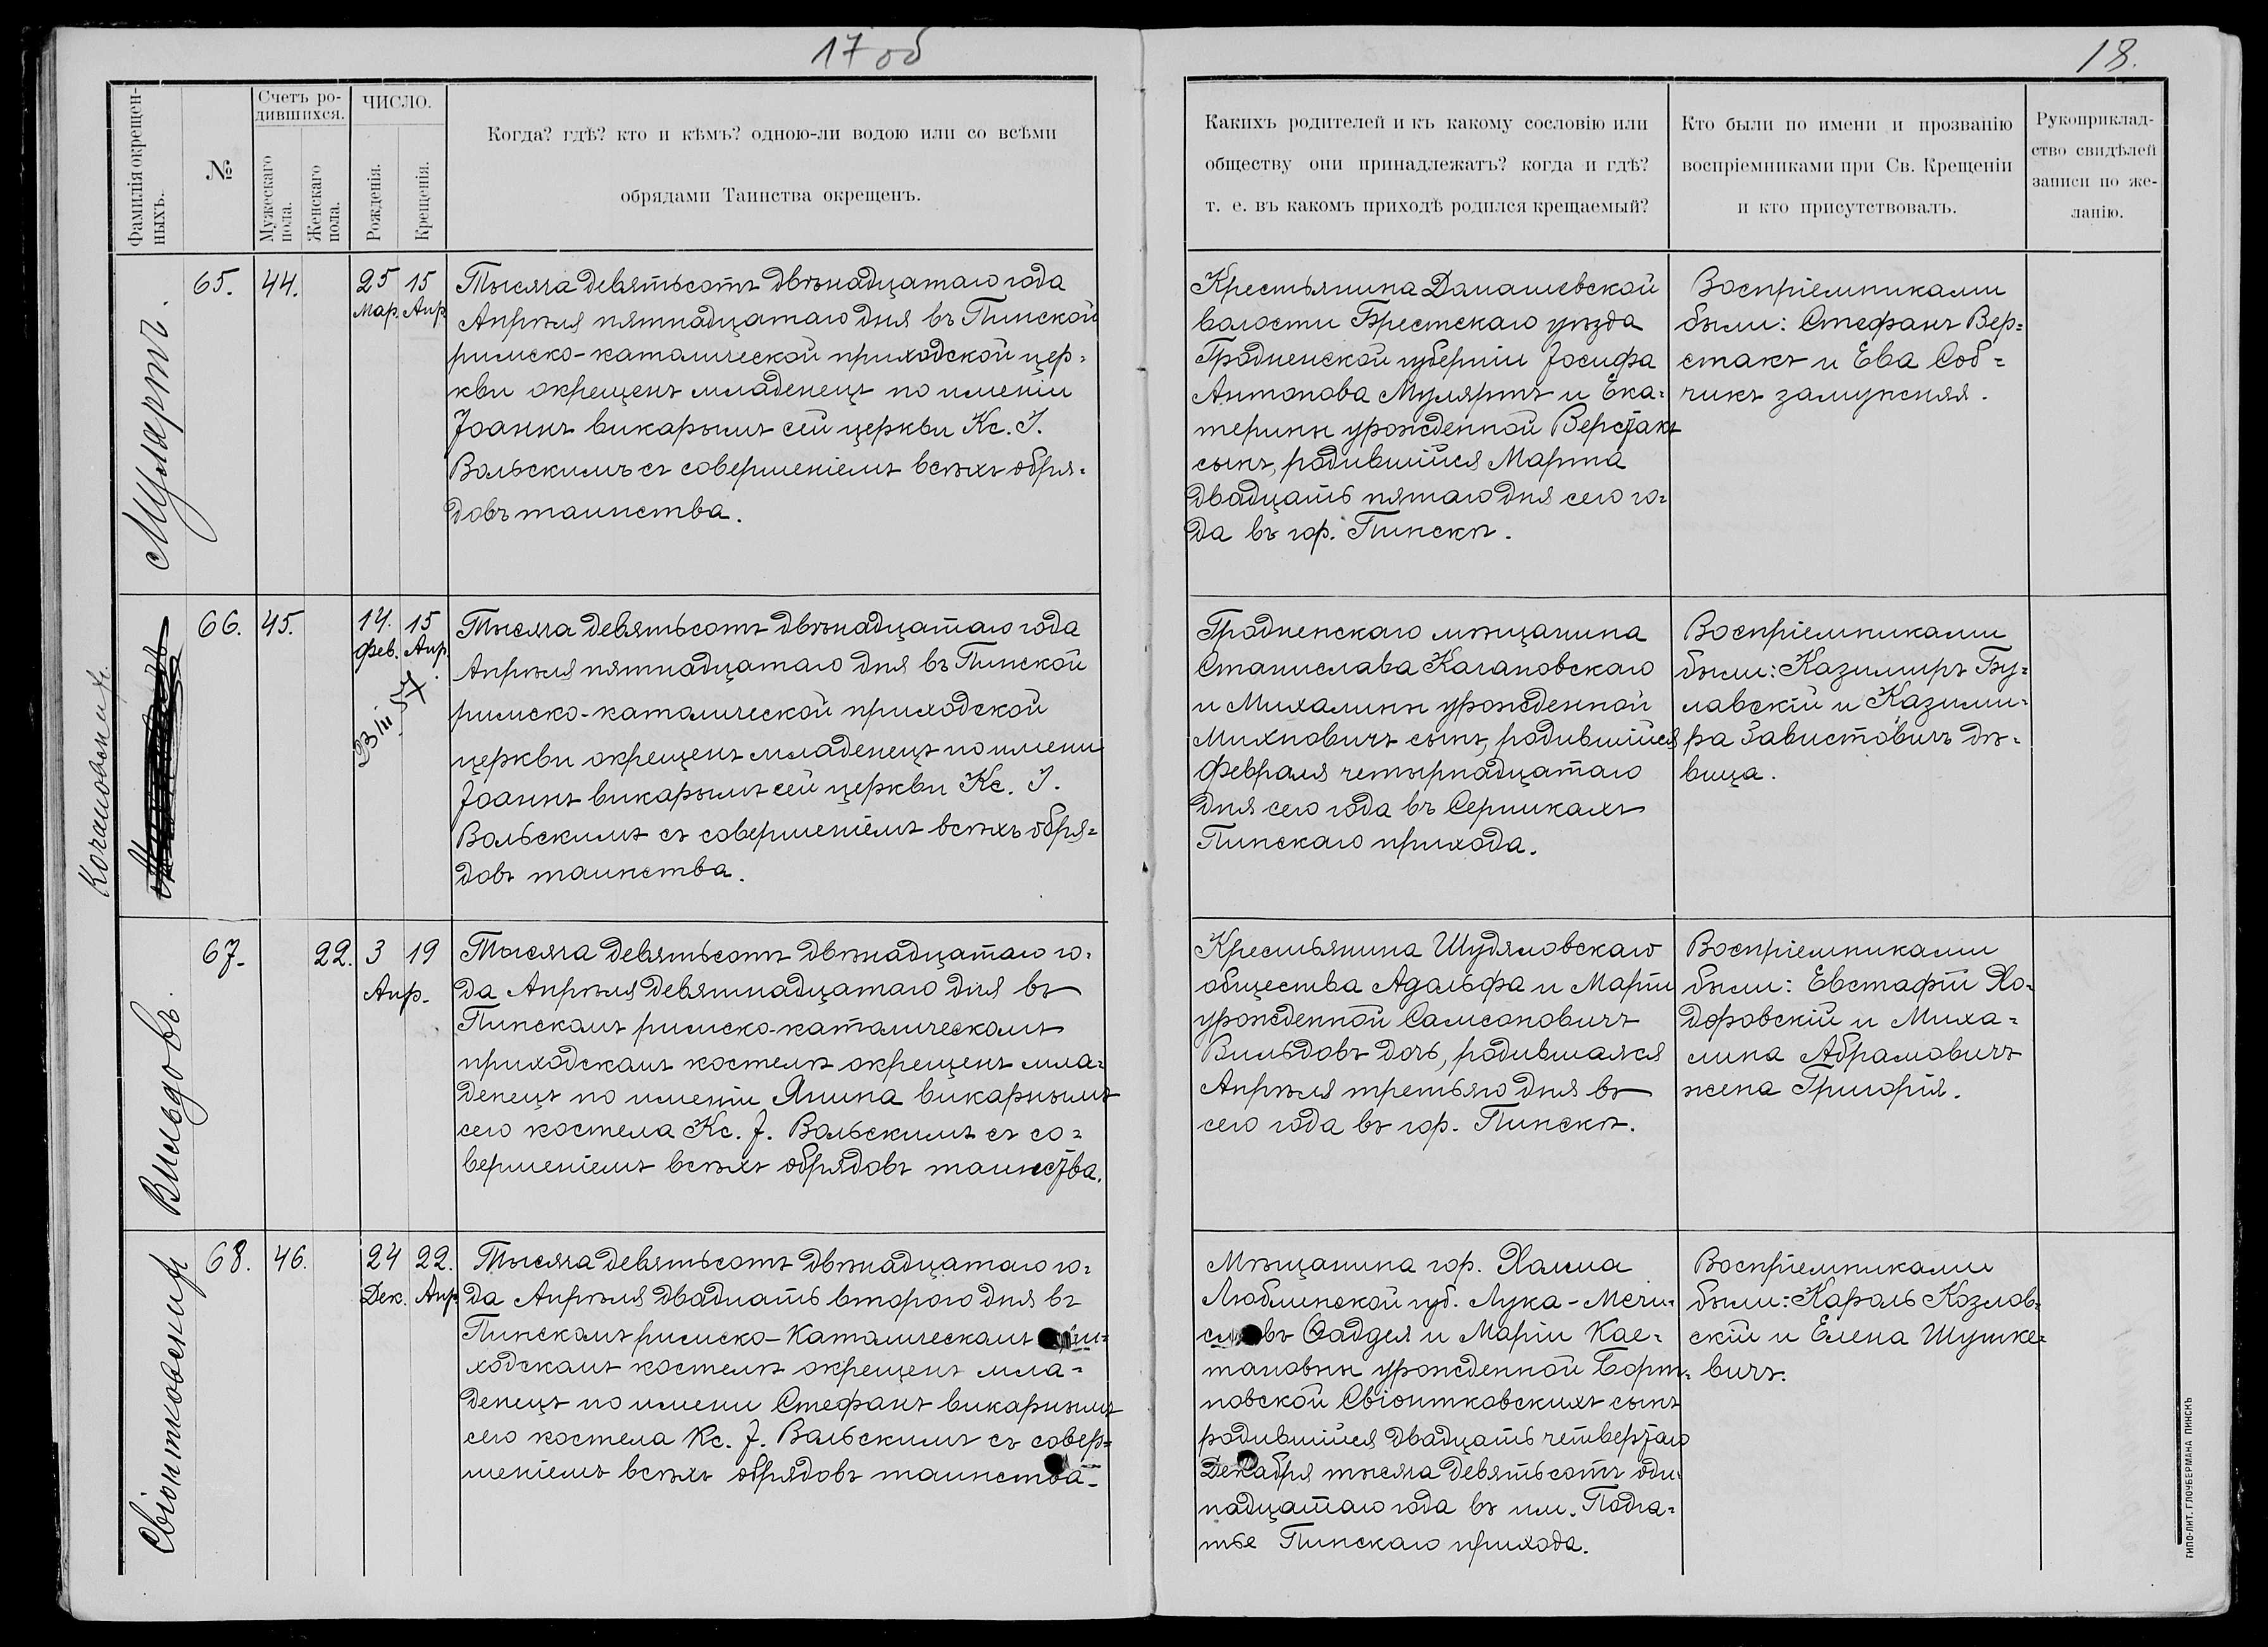 17 об
18.
Фамилія окрещен-
ныхъ.
№
Счетъ ро-
дившихся.
Мужескаго
пола.
Женскаго
пола.
ЧИСЛО.
Рожденія.
Крещенія.
Когда? гдѣ? кто и кѣмъ? одною-ли водою или со всѣми
обрядами Таинства окрещенъ.
Какихъ родителей и къ какому сословію или
обществу они принадлежатъ? когда и гдѣ?
т. е. въ какомъ приходѣ родился крещаемый?
Кто были по имени и прозванію
воспріемниками при Св. Крещеніи
и кто присутствовалъ.
Рукоприклад-
ство свидѣлей
записи по же-
ланію.
Мулартъ.
65.
44.
25 15
Мар. Апр
Тысяча девятьсотъ двѣнадцатаго года
Апрѣля пятнадцатаго дня въ Пинской
римско-католической приходской цер-
кви окрещенъ младенецъ по имени
Іоаннъ викарымъ сей церкви Кс. І.
Вольскимъ съ совершеніемъ всѣхъ обря-
довъ таинства.
Крестьянина Дамашевской
волости Брестскаго уѣзда
Гродненской губерніи Іосифа
Антонова Мулярта и Ека-
терины урожденной Верстакъ
сынъ, родившійся Марта
двадцать пятаго дня сего го-
да въ гор. Пинскѣ.
Воспріемниками
были: Стефанъ Вер-
стакъ и Ева Соб-
чикъ замужняя.
Качановскій.
66.
45.
14. 15
Фев. Апр.
23/III 57.
Тысяча девятьсотъ двѣнадцатаго года
Апрѣля пятнадцатаго дня въ Пинской
римско-католической приходской
церкви окрещенъ младенецъ по имени
Іоаннъ викарымъ сей церкви Кс. І.
Вольскимъ съ совершеніемъ всѣхъ обря-
довъ таинства.
Гродненскаго мѣщанина
Станислава Качановскаго
и Михалины урожденной
Михновичъ сынъ, родившійся
Февраля четырнадцатаго
дня сего года въ Серникахъ
Пинскаго прихода.
Воспріемниками
были: Казимиръ Бу-
лавскій и Казими-
ра Завистовичъ дѣ-
вица.
Вильдовъ.
67.
22.
3 19
Апр.
Тысяча девятьсотъ двѣнадцатаго го-
да Апрѣля девятнадцатаго дня въ
Пинскомъ римско-католическомъ
приходскомъ костелѣ окрещенъ мла-
денецъ по имени Янина викарнымъ
сего костела Кс. І. Вольскимъ съ со-
вершеніемъ всѣхъ обрядовъ таинства.
Крестьянина Шудяловскаго
общества Адольфа и Маріи
урожденной Самсоновичъ
Вильдовъ дочь, родившаяся
Апрѣля третьяго дня въ
сего года въ гор. Пинскѣ.
Воспріемниками
были: Евстафій Хо-
доровскій и Миха-
лина Абрамовичъ
жена Григорія.
Свіонтковскій
68.
46.
24 22.
Дек. Апр.
Тысяча девятьсотъ двѣнадцатаго го-
да Апрѣля двадцать второго дня въ
Пинскомъ римско-католическомъ при-
ходскомъ костелѣ окрещенъ мла-
денецъ по имени Стефанъ викарнымъ
сего костела Кс. І. Вольскимъ съ совер-
шеніемъ всѣхъ обрядовъ таинства.
Мѣщанина гор. Холма
Люблинской губ. Лука-Мечи-
Ѳаддея и Маріи Кае-
тановны урожденной Борт-
новской Свіонтковскихъ сынъ
родившійся двадцать четвертаго
Декабря тысяча девятьсотъ оди-
надцатаго года въ им. Подга-
тье Пинскаго прихода.
Воспріемниками
были: Кароль Козлов-
скій и Елена Шушке-
вичъ.
ТИПО-ЛИТ. ГЛОУБЕРМАНА ПИНСКЪ